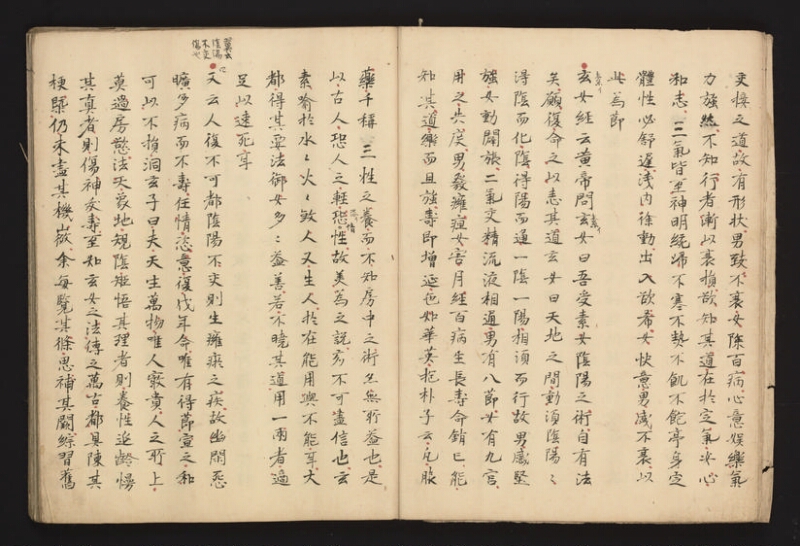 交接之道故有形状男致不衰女除百病心意娯樂氣
力強然不知行者漸以衰損欲知其道在於定氣安心
和志三氣皆至神明統歸不寒不熱不飢不飽亭身定
體性必舒遅淺内徐動出入欲希女快意男盛不衰以
此為節
玄女經云黄帝問玄女曰吾受素女陰陽之術自有法
矣願復命之以悉其道玄女曰天地之間動須陰陽〻
得陰而化陰得陽而通一陰一陽相須而行故男感堅
強女動闢張二氣交精流液相通男有八節女有九宮
用之失度男發癰疽女害月經百病生長壽命銷亡能
知其道樂而且強壽即增延色如華英抱朴子云凡服
藥千種三牲之養而不知房中之術亦無所益也是
以古人恐人之輕恣性故美為之説亦不可盡信也玄
素喩於水〻火〻致人又生人於在能用與不能耳大
都得其要法御女多〻益善若不暁其道用一兩者適
足以速死耳
又云人復不可都陰陽不交則生癰瘀之疾故幽閑怨
曠多病而不壽任情恣意復伐年命唯有得節宣之和
可以不損洞玄子曰夫天生萬物唯人最貴人之所上
莫過房慾法天象地規陰矩悟其理者則養性延齡慢
其真者則傷神夭壽至如玄女之法傳之萬古都具陳其
梗槩仍未盡其機微余毎覧其條思補其闕綜習舊